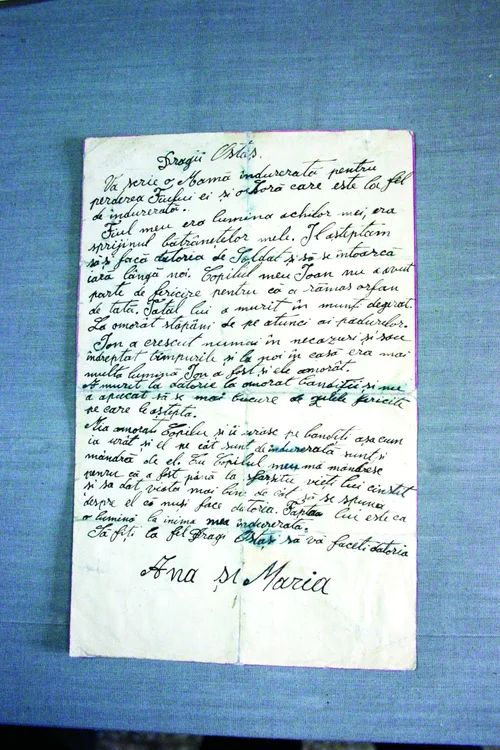 Dragii Ostas.
Vă scrie o Mamă îndurerată pentru
perderea Fiului ei si o soră care este la fel
de îndurerată.
Fiul meu era lumina ochilor mei, era
sprijinul bătrânetelor mele. Îl asteptam
să-si facă datoria de Soldat si să se întoarcă
iară lângă noi. Copilul meu Ioan nu a avut
parte de fericire pentru că a rămas orfan
de tată. Tatăl lui a murit în munti degirat.
La omorât stăpâni de pe atunci ai padurelor.
Ion a crescut numai în necazuri si sau
îndreptat timpurile si la noi în casă era mai
multă lumină Ion a fost si ele omorât.
A murit la datorie la omorat banditii si nu
a apucat să se mai bucure de zilele fericite
pe care le astepta.
Mia omorat Copilu si îi urăsc pe banditi asa cum
ia urât si el pe cât sunt de îndurerată sunt si
mândră de el. Cu Copilul meu mă mândresc
pentru că a fost până la sfarsitu vieti lui cinstit
si sa dat viata mai bine de cât să se spună
despre el că nusi face datorea. Fapta lui este ca
o lumină la inima mea indurerată.
Să fiti la fel Dragi Ostasi să vă faceti datoria
Ana și Maria